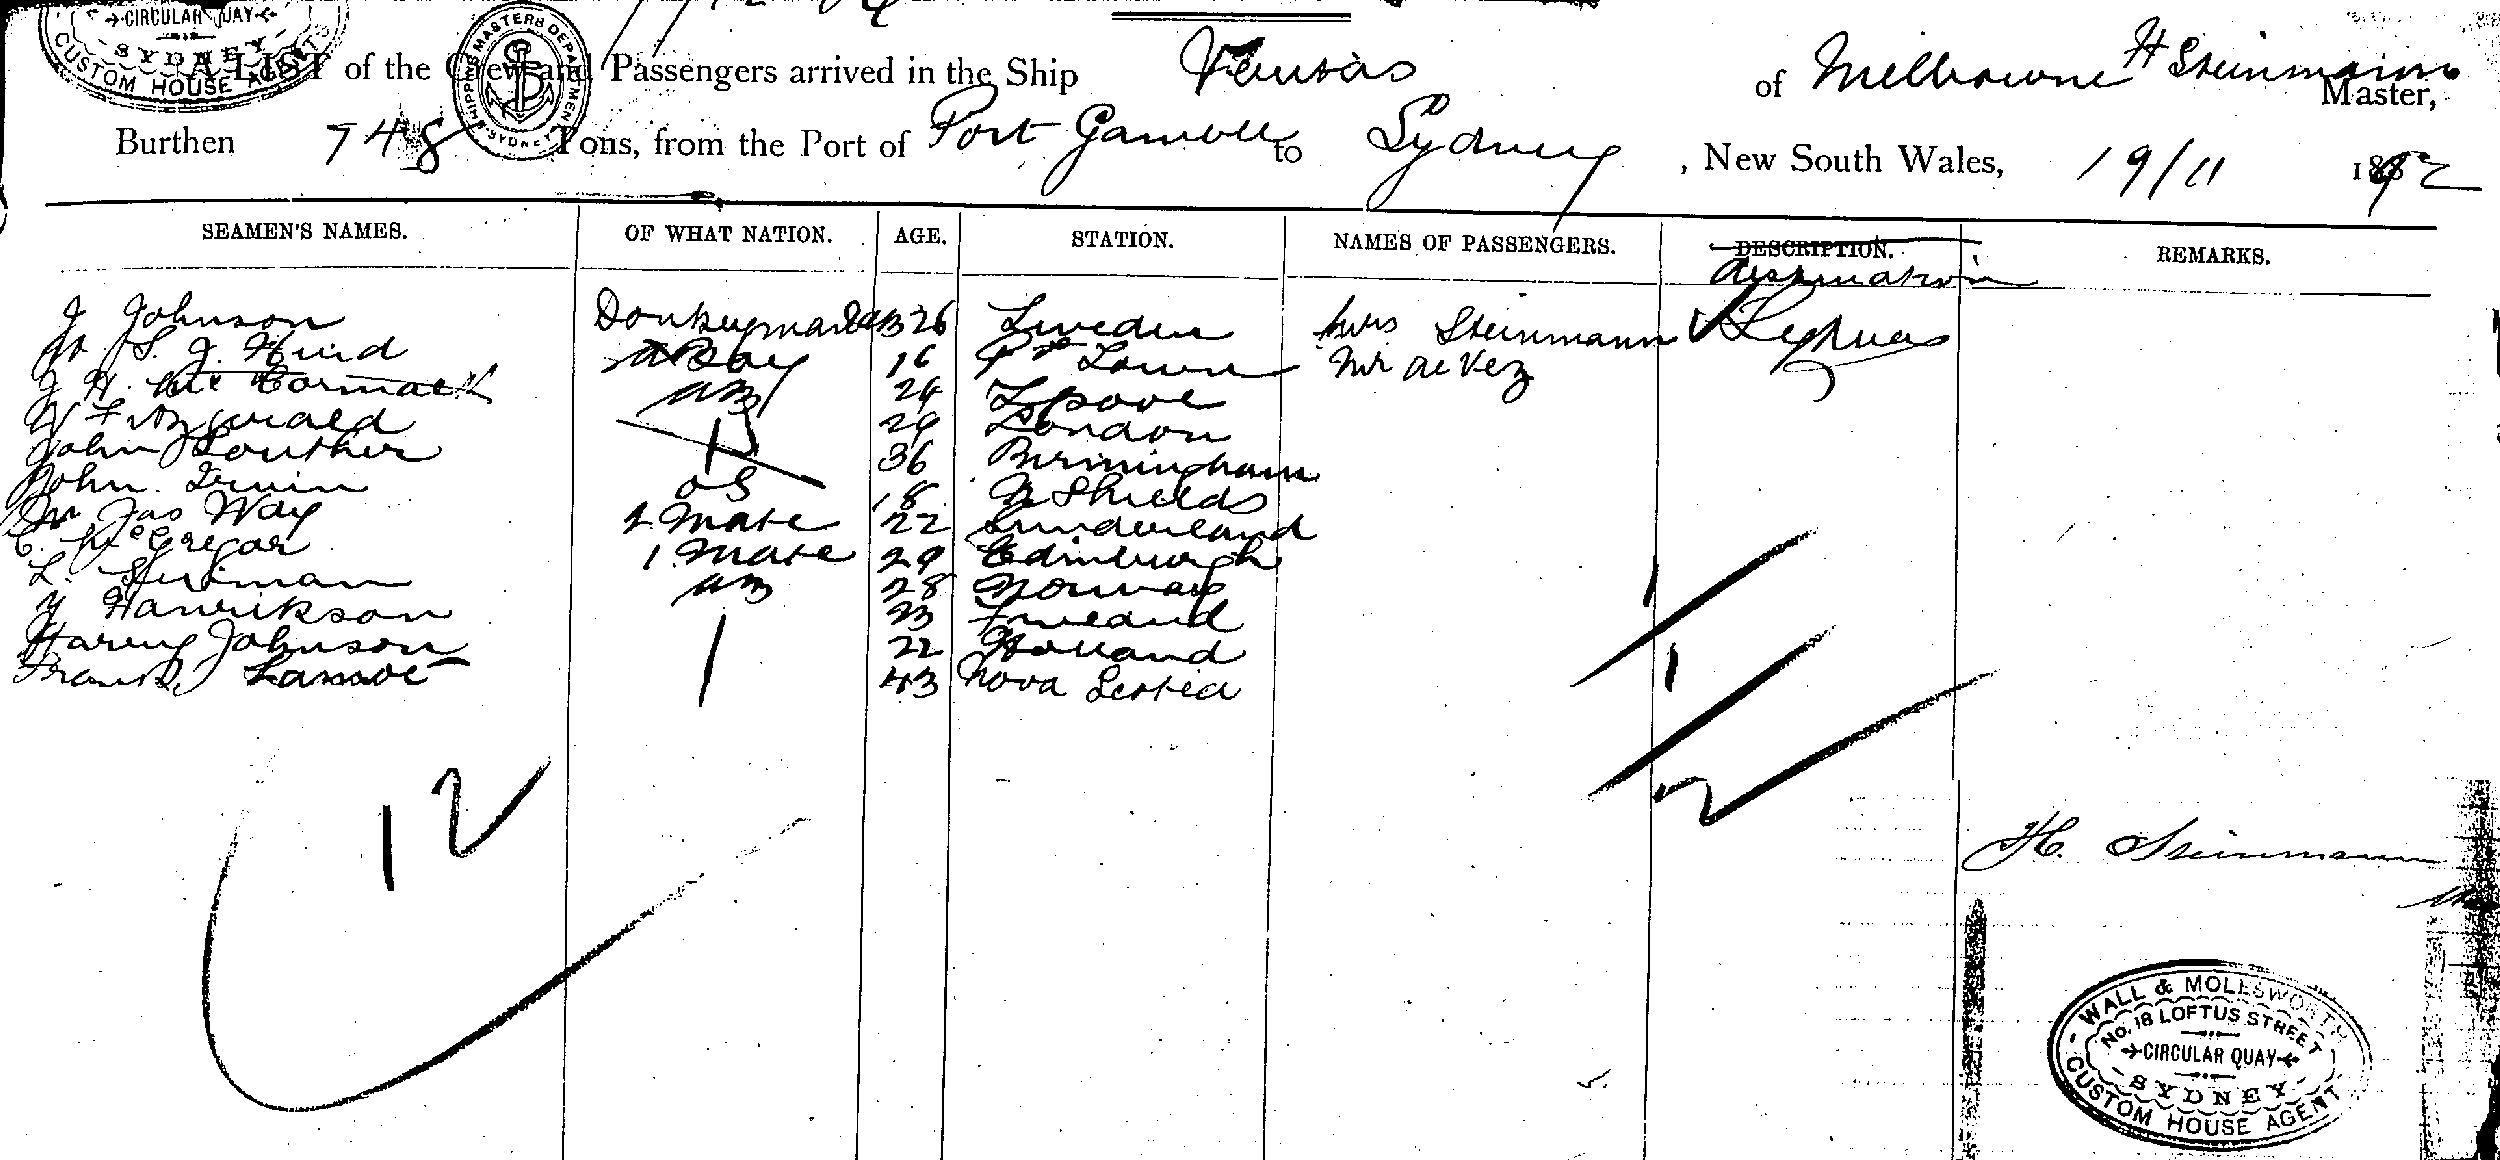 CIRCULAR QUAY
SYDNEY
CUSTOM HOUSE AGENTS
SHIPPING MASTERS DEPARTMENT SYDNEY
A LIST of the Crew and Passengers arrived in the Ship of Melbourne H Steinmann Master,
Burthen 748 Tons, from the Port of Port Gamble to Sydney, New South Wales, 19/11 1892
SEAMEN'S NAMES. OF WHAT NATION. AGE. STATION. NAMES OF PASSENGERS. DESCRIPTION. REMARKS.
J Johnson Donkeyman 26 Sweden Mrs Steinmann
S. J. Hurd Boy 16 Town Mr de Vez
J H. Mc Cormack AB 24 L'pool
W Fitzgerald 29 London
John Souther 36 Birmingham
John Irwin OS 18 N Shields
Wm Jas Way 2 Mate 22 Sunderland
C. McGregor 1 Mate 29 Edinburgh
L. AB 28 Norway
Y Hanrikson 23 Finland
Harvey Johnson 22 Holland
Frank 43 Nova Scotia
1
1
12
2
H. Steinmann
WALL & MOLESWORTH
No. 18 LOFTUS STREET
CIRCULAR QUAY
SYDNEY
CUSTOM HOUSE AGENT